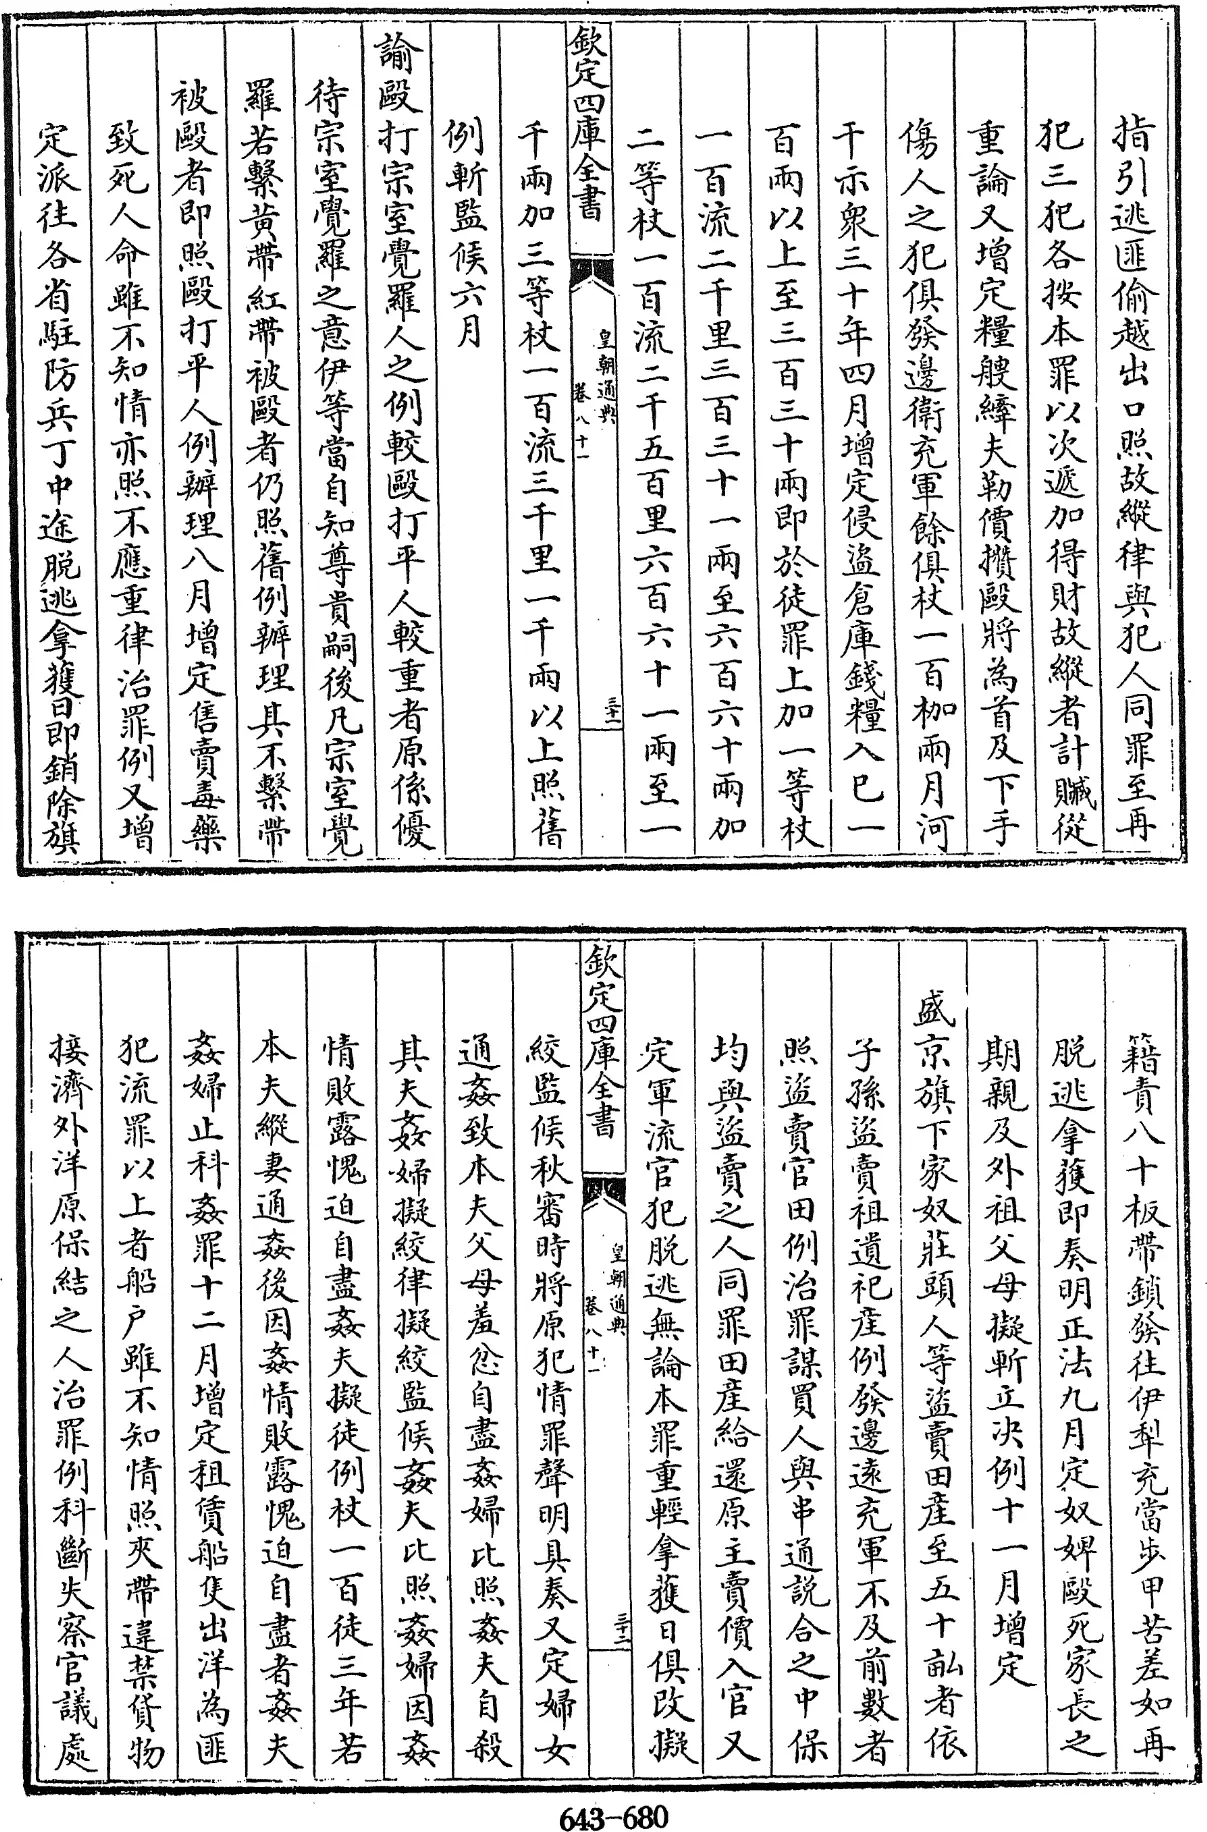 指引逃匪偷越出口照故縱律與犯人同罪至再
犯三犯各按本罪以次遞加得財故縱者計贓從
重論又增定糧艘縴夫勒價攢毆將為首及下手
傷人之犯俱發邊衛充軍餘俱杖一百枷兩月河
干示衆三十年四月增定侵盜倉庫錢糧入已一
百兩以上至三百三十兩即於徒罪上加一等杖
一百流二千里三百三十一兩至六百六十兩加
二等杖一百流二千五百里六百六十一兩至一
欽定四庫全書
皇朝通典
卷八十一
三十一
千兩加三等杖一百流三千里一千兩以上照舊
例斬監候六月
諭毆打宗室覺羅人之例較毆打平人較重者原係優
待宗室覺羅之意伊等當自知尊貴嗣後凡宗室覺
羅若繫黃帶紅帶被毆者仍照舊例辦理其不繫帶
被毆者即照毆打平人例辦理八月增定售賣毒藥
致死人命雖不知情亦照不應重律治罪例又增
定派往各省駐防兵丁中途脫逃拿獲日即銷除旗
籍責八十板帶鎖發往伊犁充當步甲苦差如再
脫逃拿獲即奏明正法九月定奴婢毆死家長之
期親及外祖父母擬斬立决例十一月增定
盛京旗下家奴莊頭人等盜賣田產至五十畝者依
子孫盜賣祖遺祀產例發邊遠充軍不及前數者
照盜賣官田例治罪謀買人與串通説合之中保
均與盜賣之人同罪田產給還原主賣價入官又
定軍流官犯脫逃無論本罪重輕拿獲日俱改擬
欽定四庫全書
皇朝通典
卷八十一
三十二
絞監候秋審時將原犯情罪聲明具奏又定婦女
通姦致本夫父母羞忿自盡姦婦比照姦夫自殺
其夫姦婦擬絞律擬絞監候姦夫比照姦婦因姦
情敗露愧迫自盡姦夫擬徒例杖一百徒三年若
本夫縱妻通姦後因姦情敗露愧迫自盡者姦夫
姦婦止科姦罪十二月增定租賃船隻出洋為匪
犯流罪以上者船戶雖不知情照夾帶違禁貨物
接濟外洋原保結之人治罪例科斷失察官議處
643-680